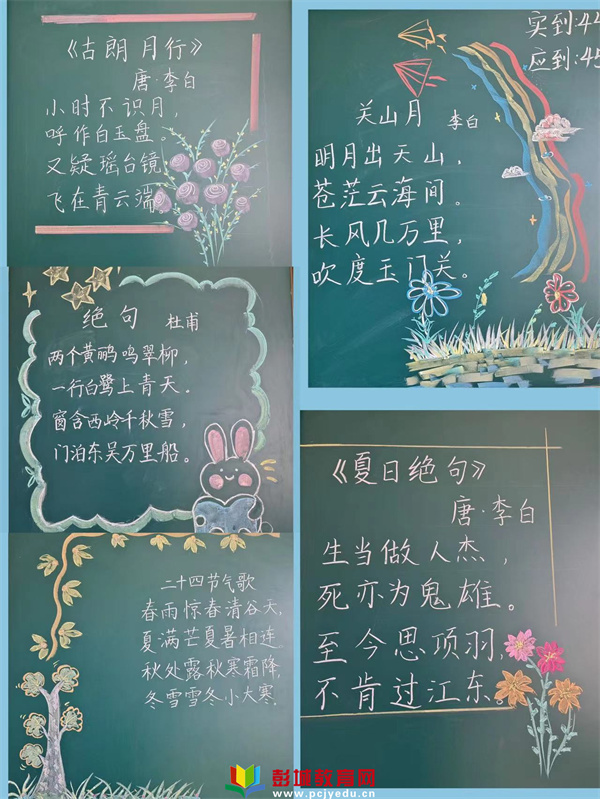 《古朗月行》
唐·李白
小时不识月，
呼作白玉盘
又疑瑶台镜，
飞在青云端
实到:44
应到:45
关山月 李白
明月出天山，
苍茫云海间。
长风几万里，
吹度玉门关。
绝句 杜甫
两个黄鹂鸣翠柳，
一行白鹭上青天。
窗含西岭千秋雪，
门泊东吴万里船。
《夏日绝句》
唐·李白
生当做人杰，
死亦为鬼雄。
至今思项羽，
不肯过江东。
二十四节气歌
春雨惊春清谷天，
夏满芒夏暑相连
秋处露秋寒霜降，
冬雪雪冬小大寒.
彭城教育网
www.pcjyedu.cn